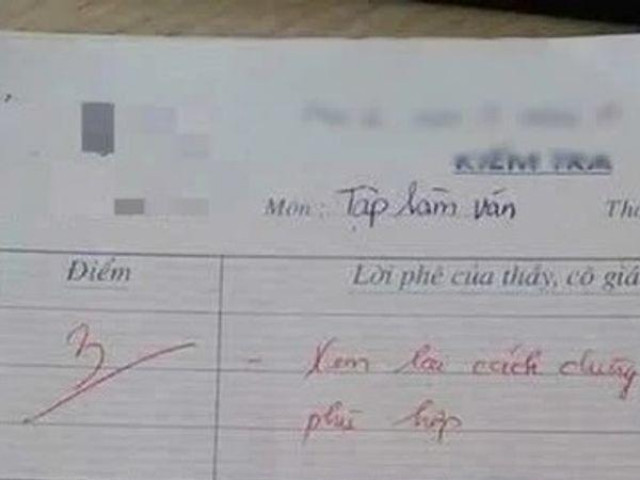 KIỂM TRA
Môn: Tập làm văn
Điểm
Lời phê của thầy, cô giá
3
- Xem lại cách
phù hợp